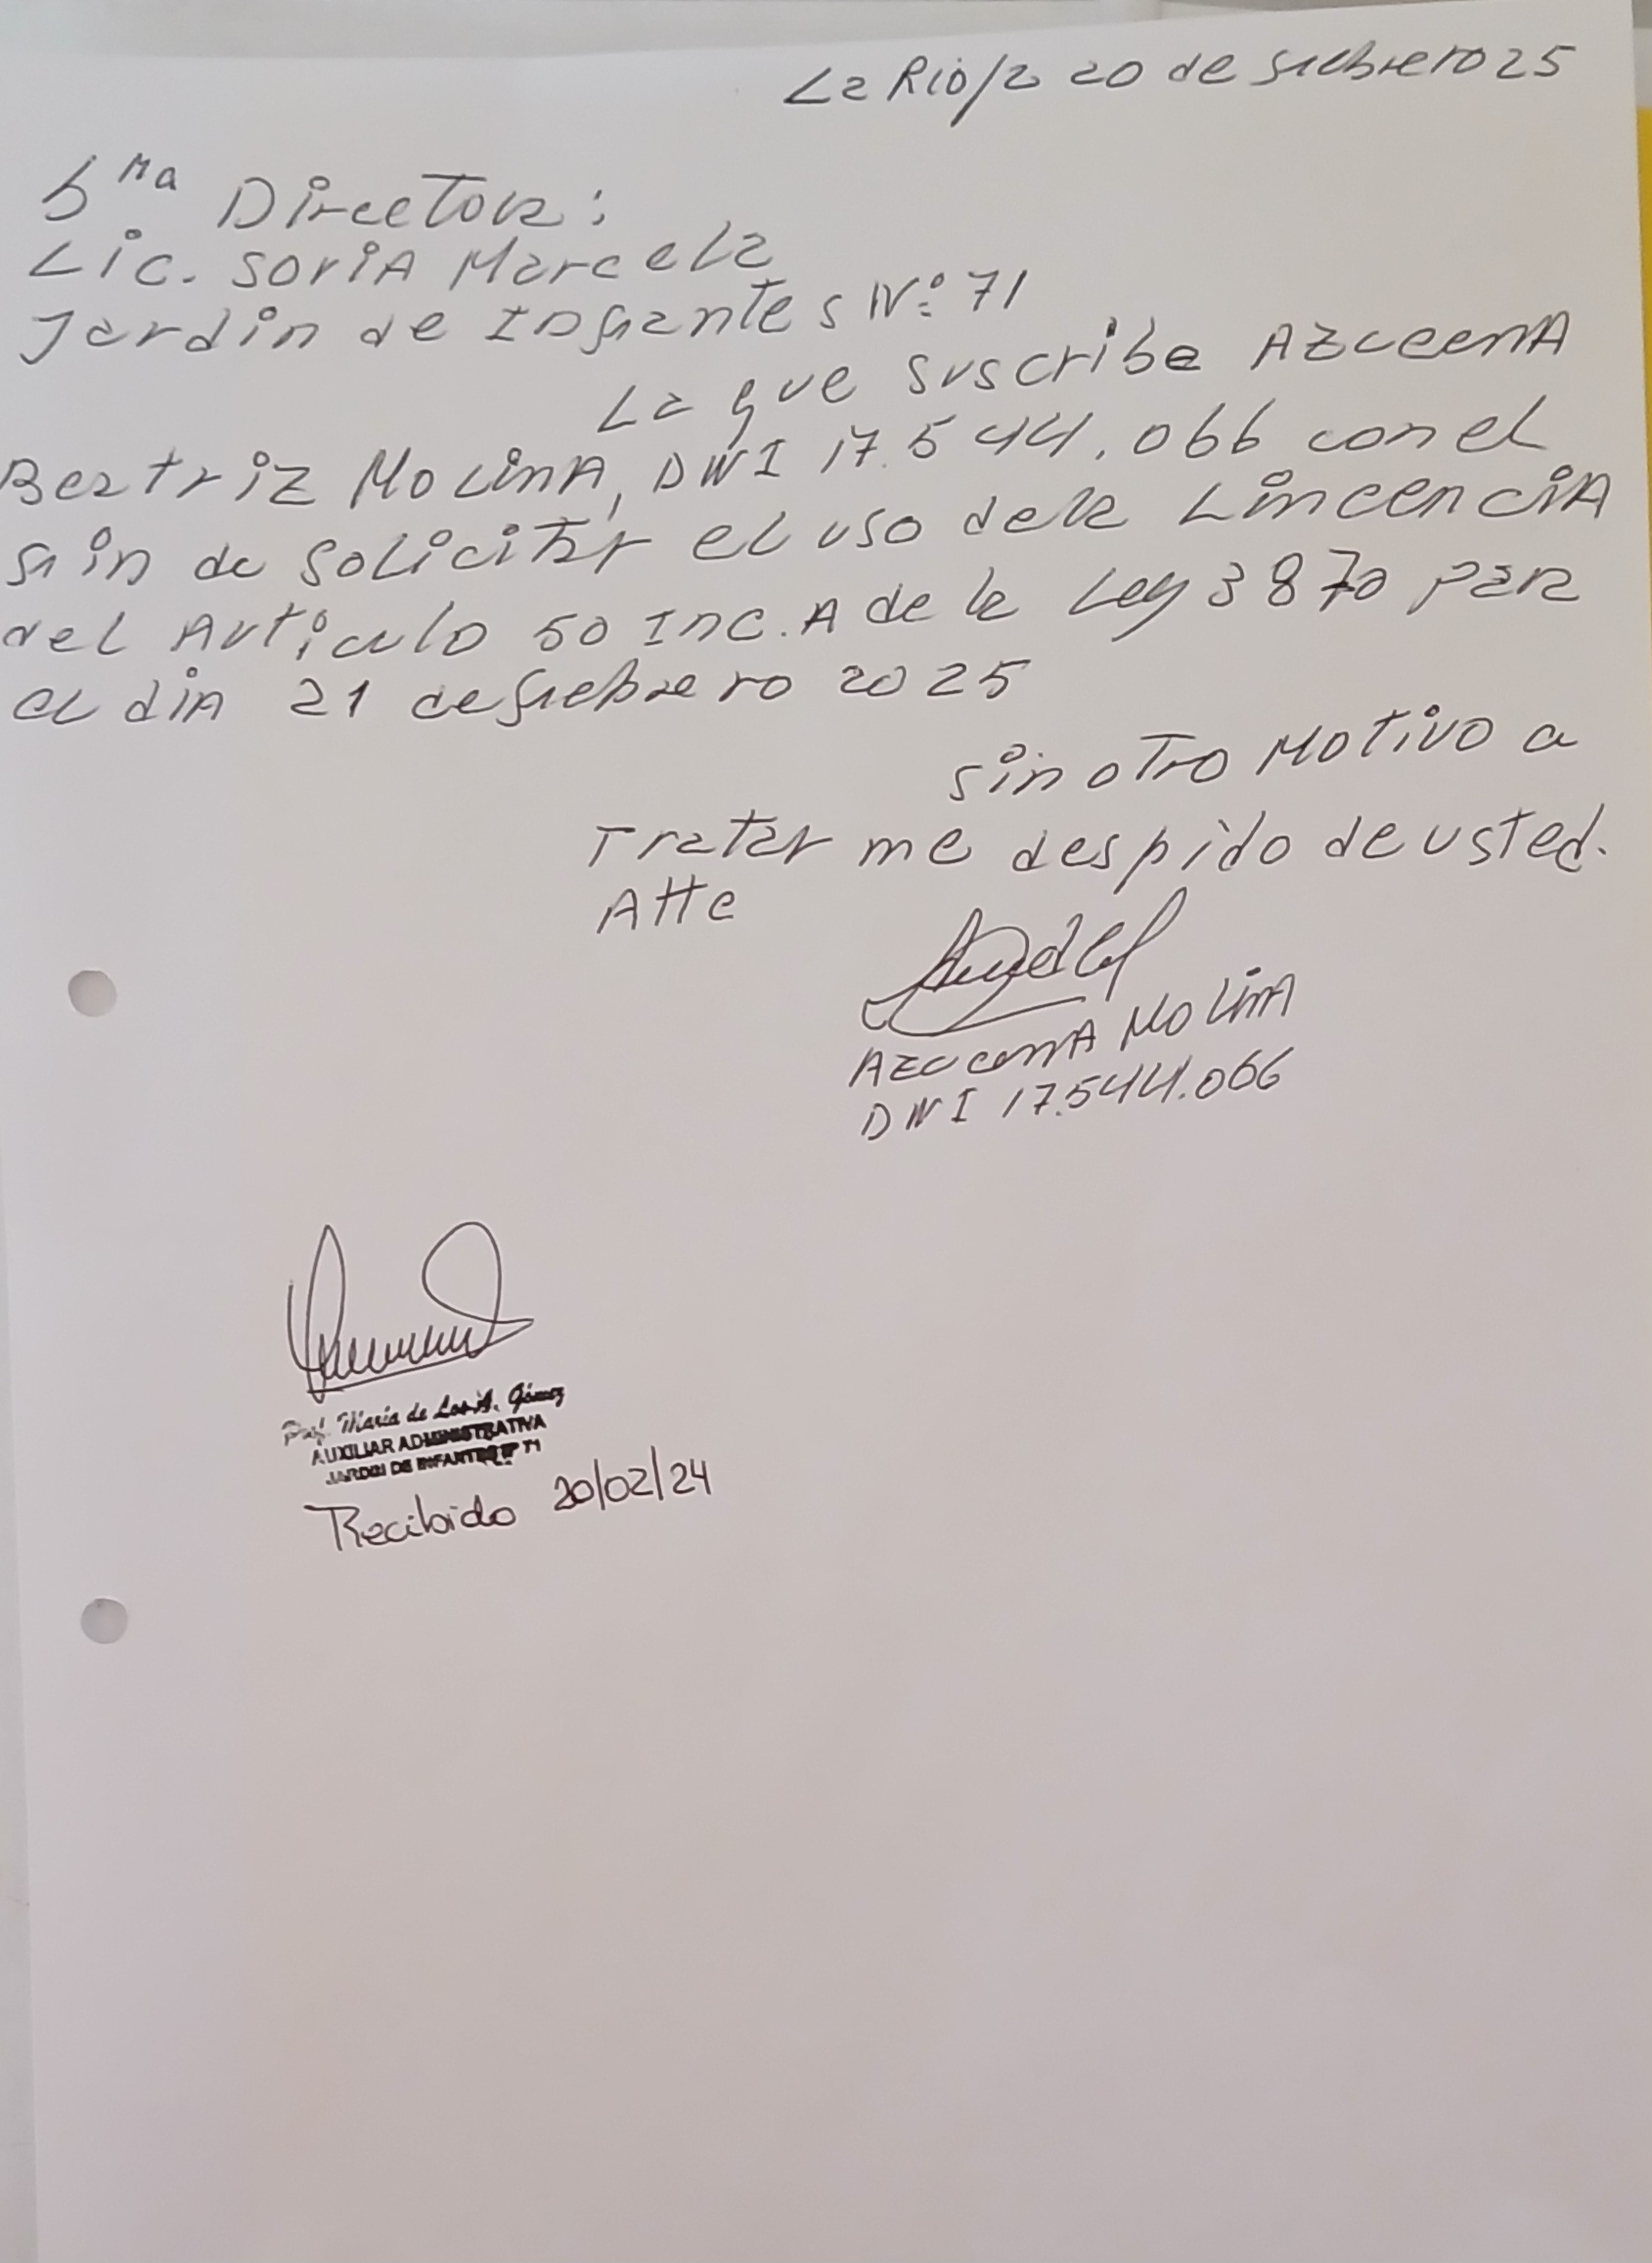 La Rioja 20 de febrero 25
Sra Directora:
Lic. Soria Marcela
Jardin de Infantes N° 71
La que suscribe AZUCENA
Beatriz Molina, DNI 17.544.066 con el
fin de solicitar el uso dela LincenciA
del Articulo 50 Inc. A de la Ley 3870 para
el dia 21 de febrero 2025
Sin otro Motivo a
Tratar me despido de usted.
Atte
AZUCENA MOLINA
DNI 17.544.066
Prof. María de Los A. Gómez
AUXILIAR ADMINISTRATIVA
JARDIN DE INFANTES Nº 71
Recibido 20/02/24